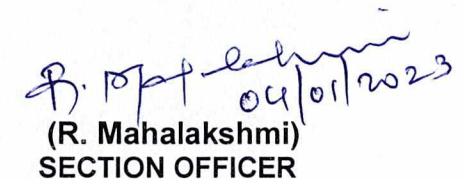 R. Mahalakshmi
04/01/2023
(R. Mahalakshmi)
SECTION OFFICER